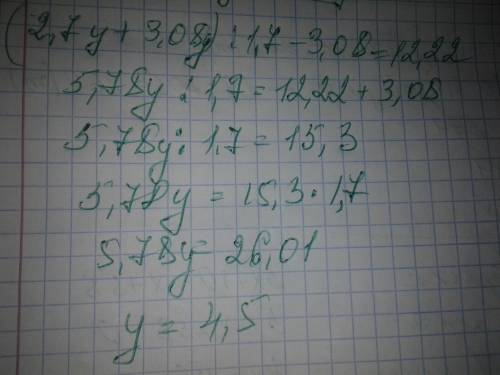 (2,7y + 3,08y) : 1,7 - 3,08 = 12,22
5,78y : 1,7 = 12,22 + 3,08
5,78y : 1,7 = 15,3
5,78y = 15,3 · 1,7
5,78y = 26,01
y = 4,5